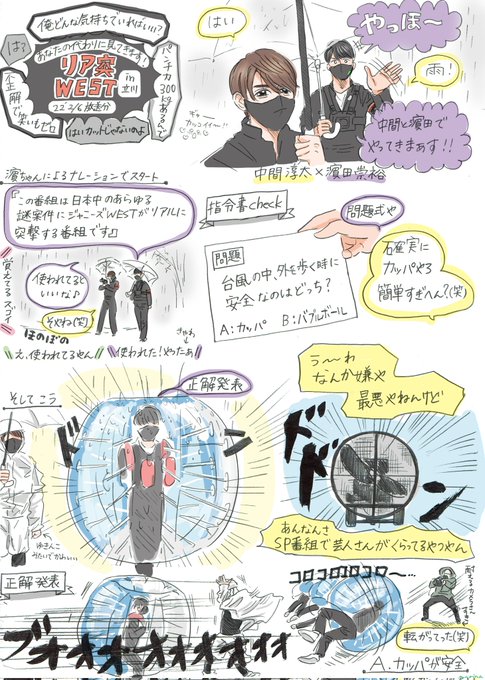 俺どんな気持ちでいればいい?
は?
あなたの代わりに見てきます!
リア突
WEST in 立川
22'2/6 放送分
正解で笑いもゼロ
はいカットじゃないのよ
パンチカ300kgあるんで
はい
やっほ〜
雨!
中間と濵田で
やってきまぁす!!
中間淳太×濵田崇裕
濵ちゃんによるナレーションでスタート
『この番組は日本中のあらゆる
謎案件にジャニーズWESTがリアルに
突撃する番組です』
覚えてるスゴイ
使われてると
いいな♪
そやね(笑)
ほのぼの
え、使われてるやん
使われた!やったぁ
指令書check
問題
台風の中、外を歩く時に
安全なのはどっち?
A:カッパ B:バブルボール
問題式や
確実に
カッパやろ
簡単すぎへん?(笑)
そしてこう
正解発表
ドン
ゆきんこ
みたいでかわいい…
う〜わ
なんか嫌や
最悪やねんけど
ドドドン
あんなんさ
SP番組で芸人さんがくらってるやつやん
正解発表
ブオオオーオオオオオオ
コロコロコロコロ〜…
耐えるカメラさん
すごい
転がってった(笑)
A.カッパが安全